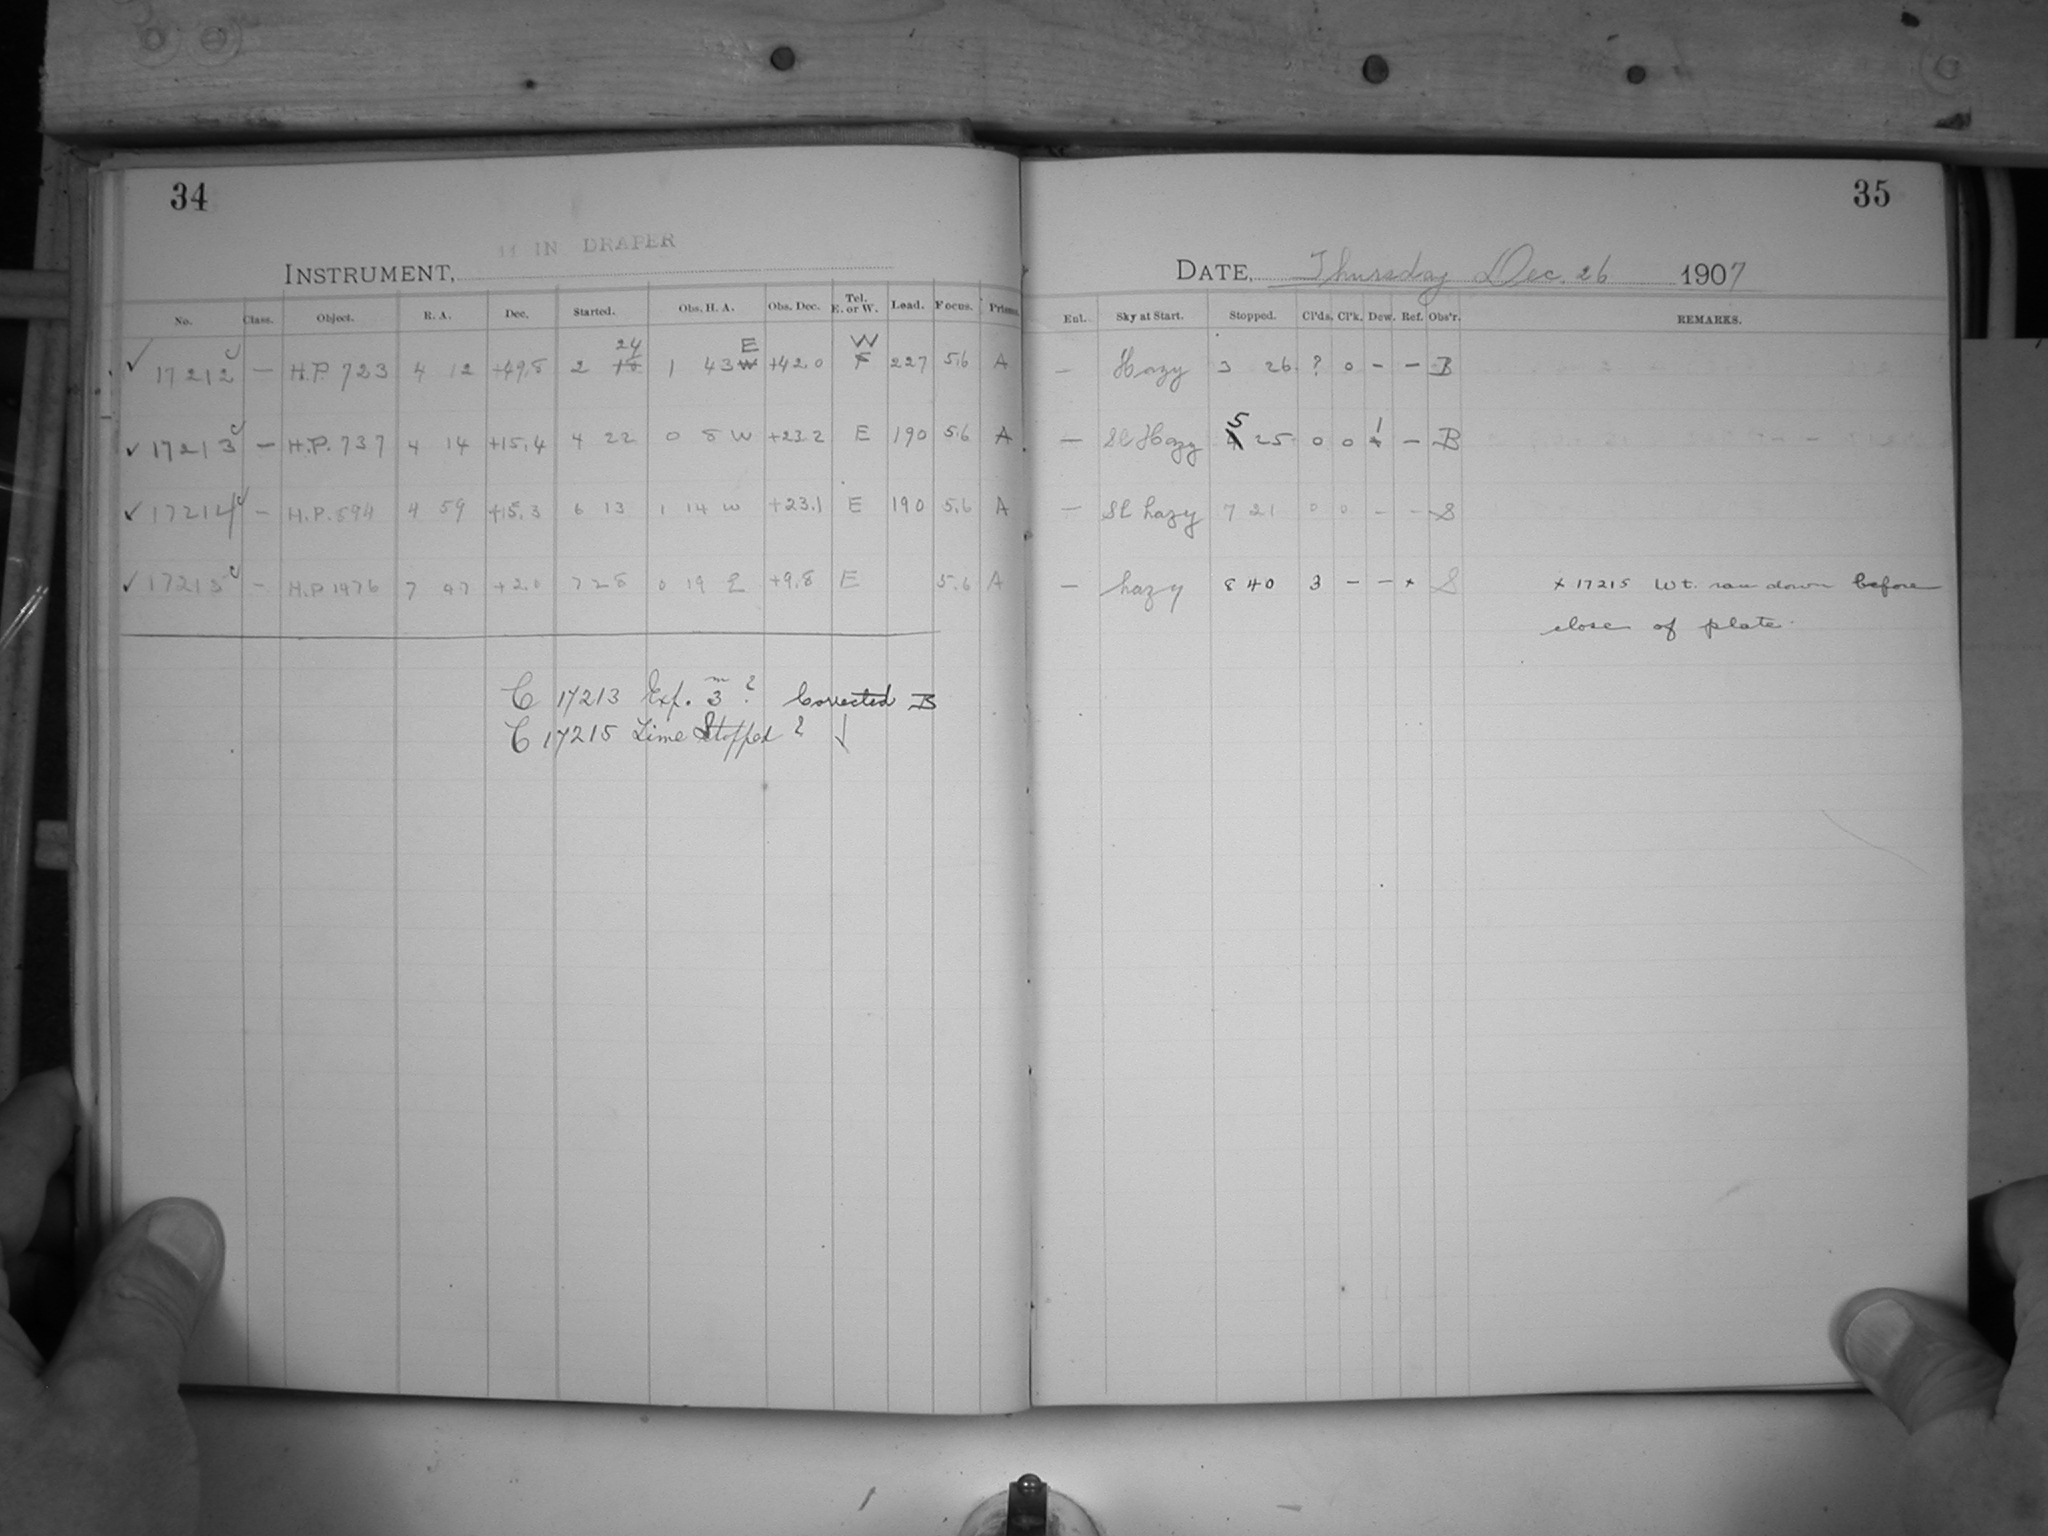 34
11 IN DRAPER
INSTRUMENT,
No. Class. Object. R. A. Dec. Started. Obs. H. A. Obs. Dec. Tel. E. or W. Load. Focus. Prisms.
24 E W
✓ 17212 — H.P. 723 4 12 +49.8 2 18 1 43 W +42.0 E 227 5.6 A
✓ 17213 — H.P. 737 4 14 +15.4 4 22 0 8 W +23.2 E 190 5.6 A
✓ 17214 — H.P. 894 4 59 +15.3 6 13 1 14 W +23.1 E 190 5.6 A
✓ 17215 — H.P. 1476 7 47 +2.0 7 28 0 19 E +9.8 E 5.6 A
C 17213 Exp. 3 m ? Corrected B
C 17215 Time Stopped ? ↓
35
DATE, Thursday Dec. 26 1907
Enl. Sky at Start. Stopped. Cl'ds. Cl'k. Dew. Ref. Obs'r. REMARKS.
— Hazy 3 26 ? 0 – – B
— Sl Hazy 5 25 0 0 1 – B
— Sl hazy 7 21 0 0 – – S
— hazy 8 40 3 – – x S x 17215 Wt. ran down before
close of plate.